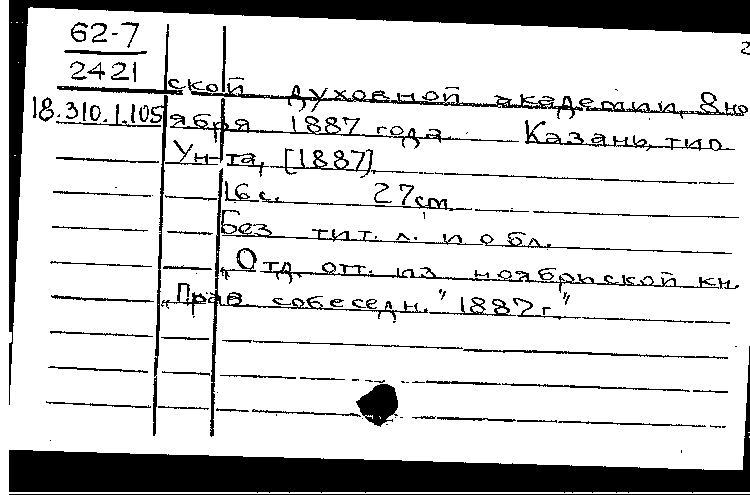 2
62-7
2421
ской духовной академии, 8 но
18.310.1.105 ября 1887 года Казань, тип
Ун-та, [1887].
16 с. 27 см.
Без тит. л. и обл.
„Отд. отт. из ноябрьской кн.
„Прав собеседн." 1887 г."